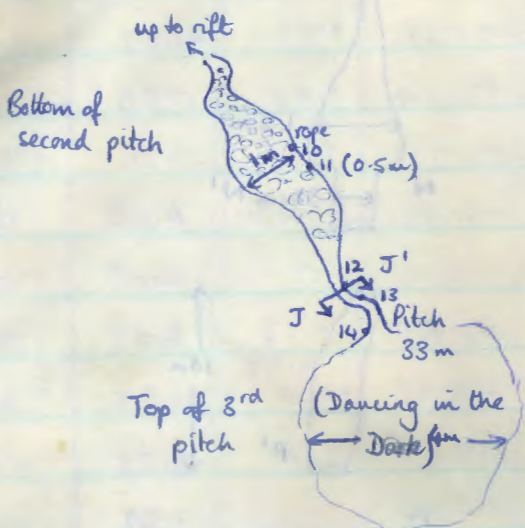 up to rift
Bottom of
second pitch
rope
10
1m
11 (0.5m)
12 J'
13
J
14 Pitch
33m
Top of 3rd
pitch
(Dancing in the
Dark) 4m